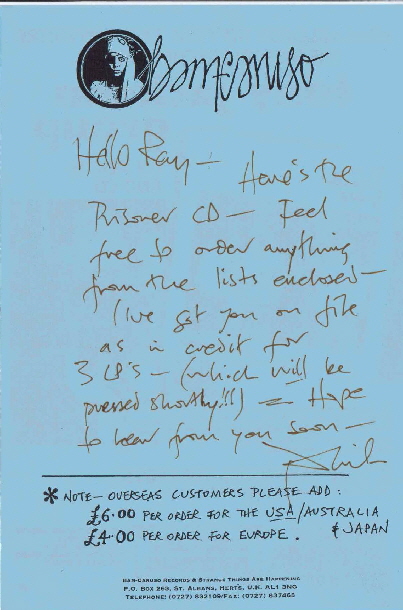 Bam Caruso
Hello Ray – Here's the
Prisoner CD – Feel
free to order anything
from the lists enclosed –
(I've got you on file
as in credit for
3 LP's – (which will be
pressed shortly!!!) – Hope
to hear from you soon –
Phil
* NOTE – OVERSEAS CUSTOMERS PLEASE ADD:
£6.00 PER ORDER FOR THE USA/AUSTRALIA
& JAPAN
£4.00 PER ORDER FOR EUROPE.
BAM-CARUSO RECORDS & STRANGE THINGS ARE HAPPENING
P.O. BOX 263, ST. ALBANS, HERTS, U.K. AL1 3NG
TELEPHONE: (0727) 832109/FAX: (0727) 837465